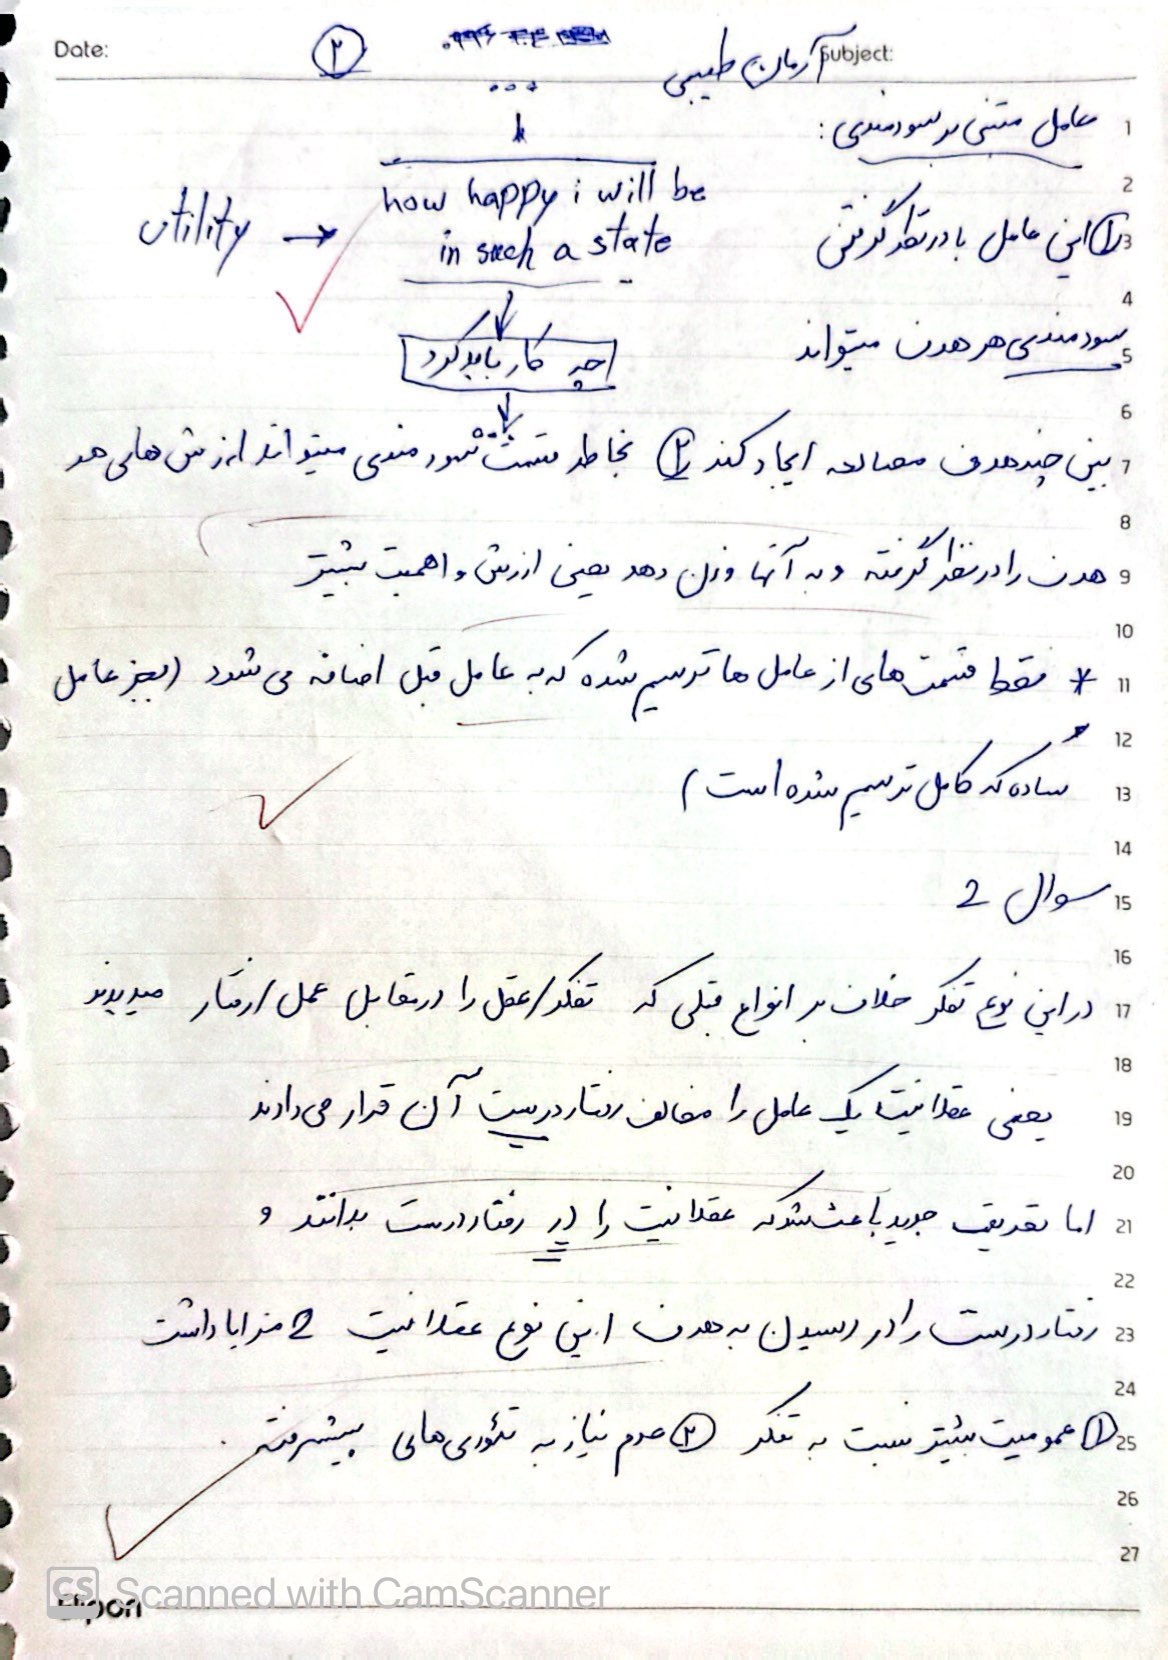 Date:
۲
Subject:
آرمان طبیبی
...
عامل مبتنی بر سودمندی:
utility → how happy i will be
in such a state
① این عامل با درنظر گرفتن
سودمندی هر هدف میتواند
چه کار باید کرد
...
بین چند هدف مصالحه ایجاد کند ② بخاطر قسمت سودمندی میتواند ارزش های هر
هدف را درنظر گرفته و به آنها وزن دهد یعنی ارزش و اهمیت بیشتر
* فقط قسمت های از عامل ها ترسیم شده که به عامل قبل اضافه می شود (بجز عامل
ساده که کامل ترسیم شده است)
سوال 2
در این نوع تفکر خلاف بر انواع قبلی که تفکر/عقل را در مقابل عمل/رفتار میدیدند
یعنی عقلانیت یک عامل را مخالف رفتار درست آن قرار می دادند
اما تعریف جدید باعث شد که عقلانیت را در رفتار درست بدانند و
رفتار درست را در رسیدن به هدف این نوع عقلانیت 2 مزایا داشت
① عمومیت بیشتر نسبت به تفکر ② عدم نیاز به تئوری های پیشرفته.
1
2
3
4
5
6
7
8
9
10
11
12
13
14
15
16
17
18
19
20
21
22
23
24
25
26
27
CS Scanned with CamScanner